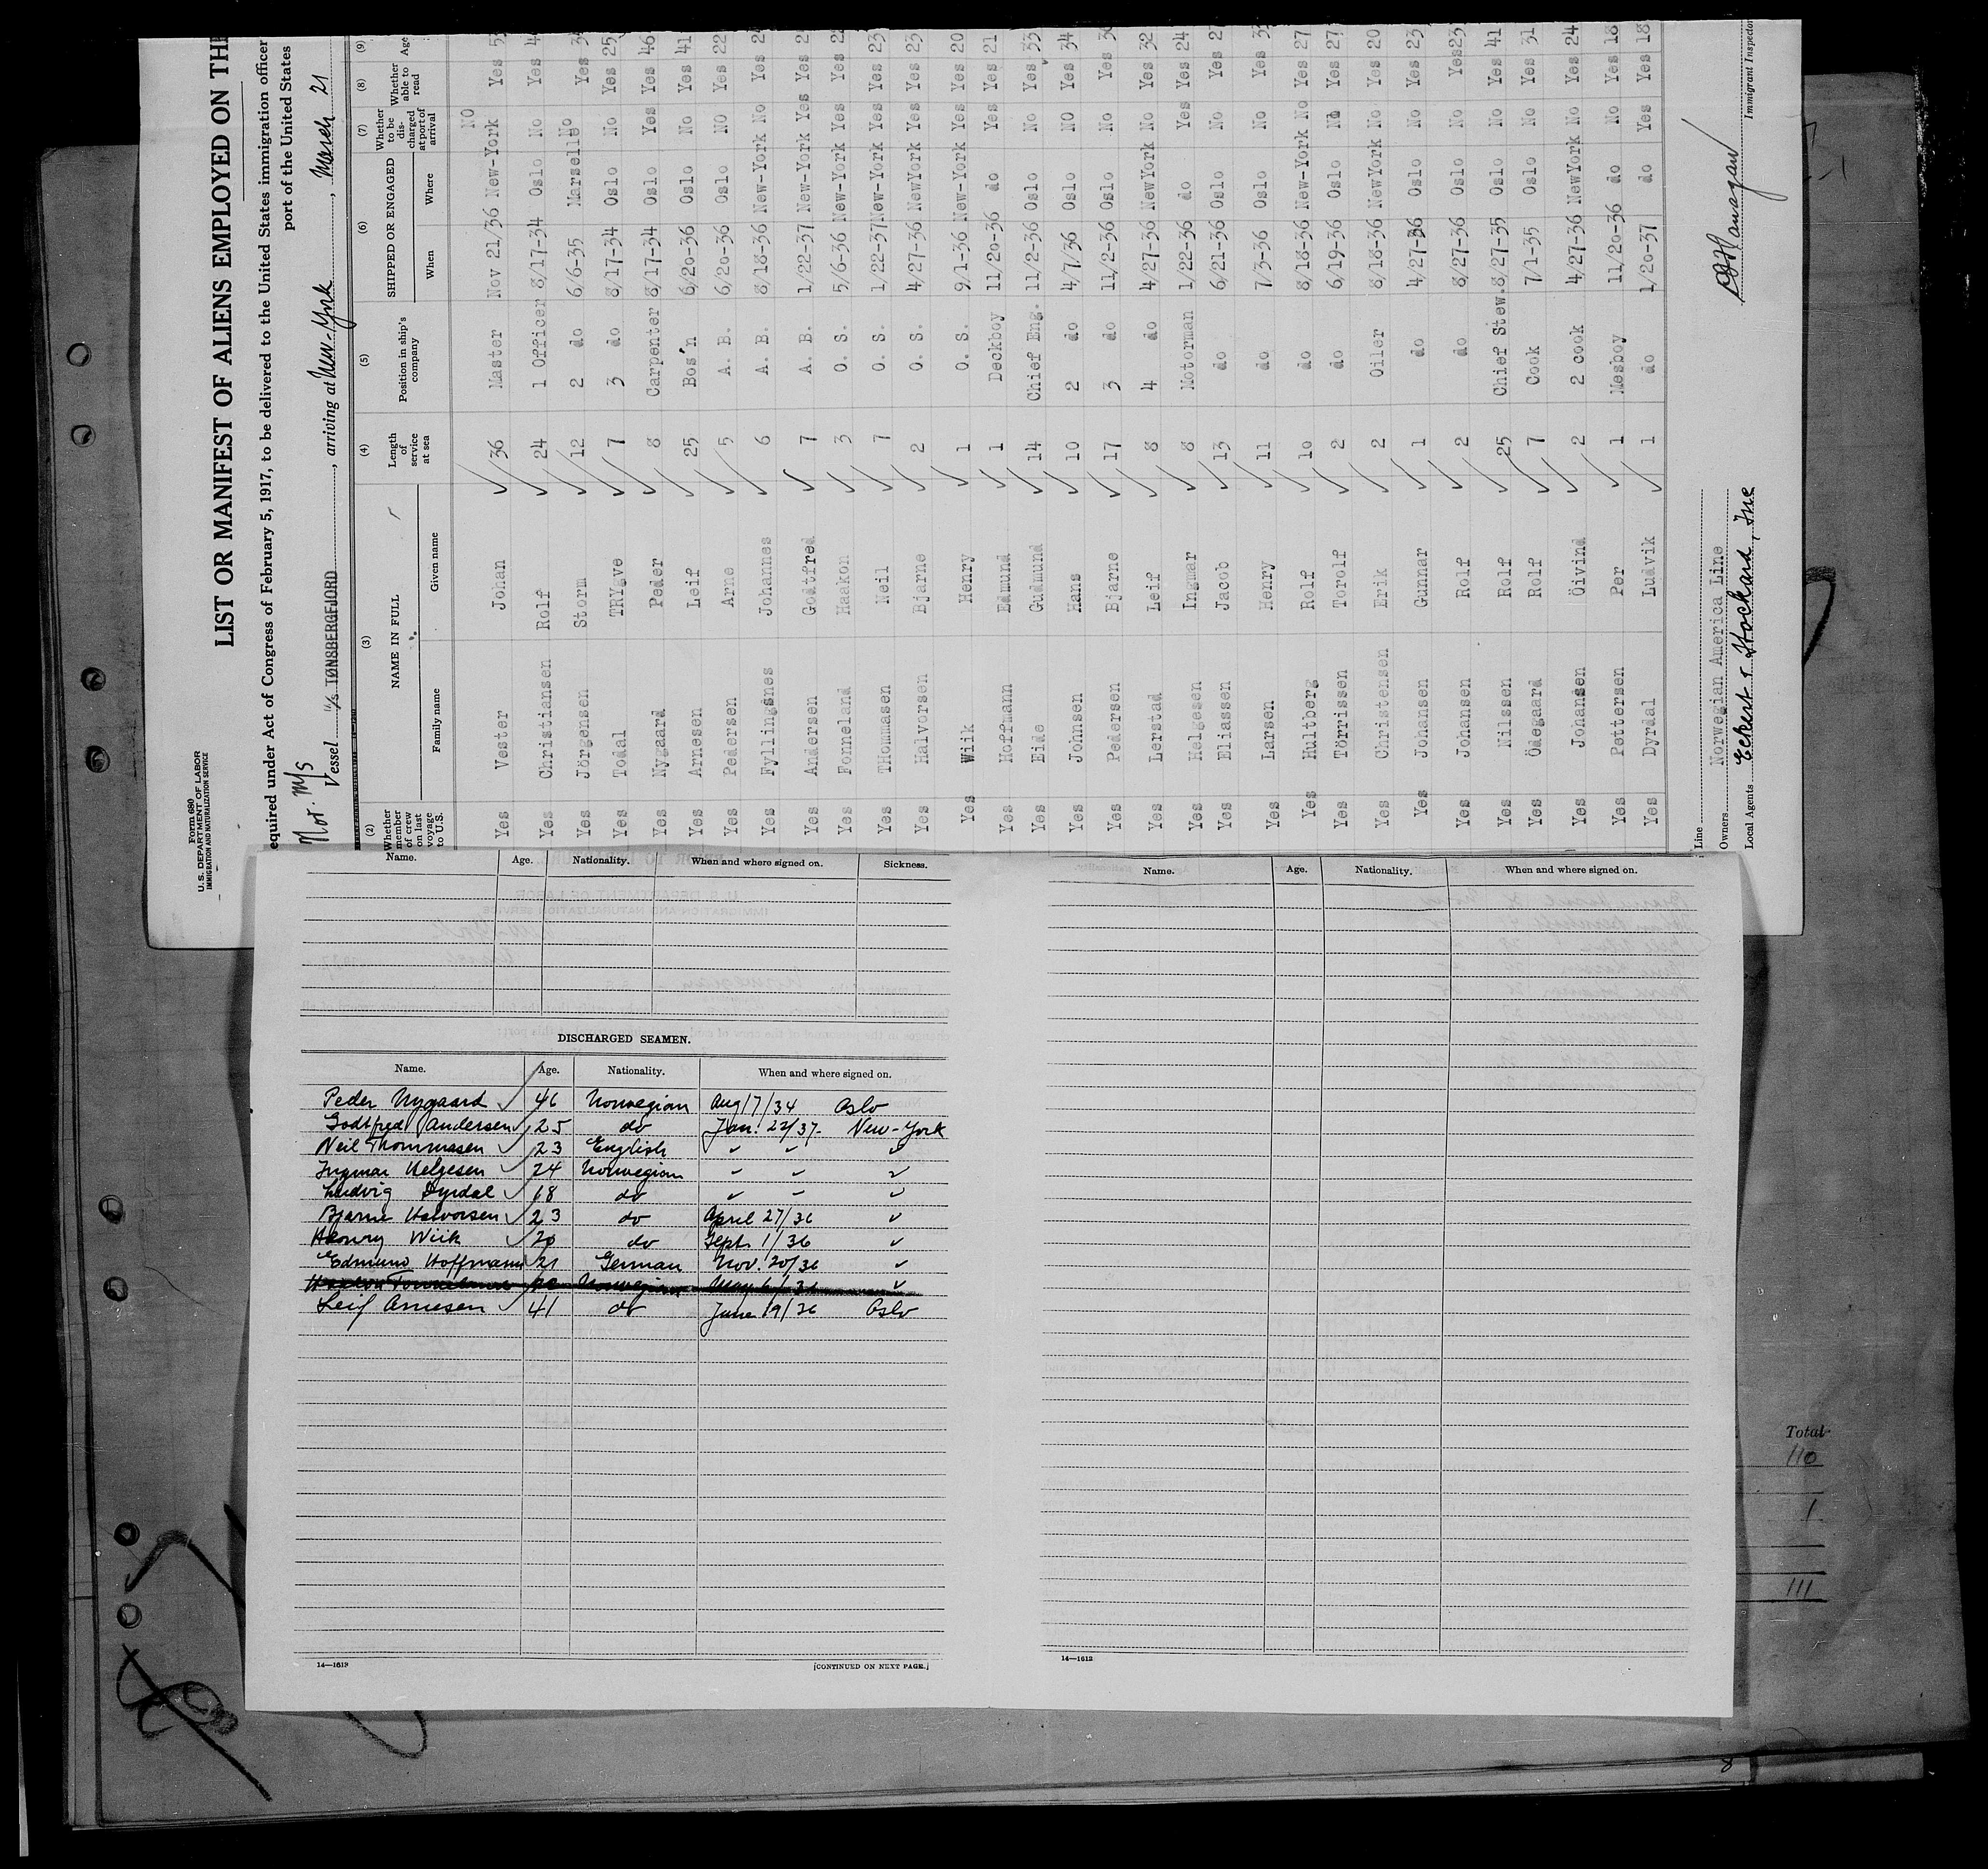 Form 680
U. S. DEPARTMENT OF LABOR
IMMIGRATION AND NATURALIZATION SERVICE
LIST OR MANIFEST OF ALIENS EMPLOYED ON THE
equired under Act of Congress of February 5, 1917, to be delivered to the United States immigration officer
port of the United States
Nor. M/S
Vessel M/S TØNSBERGFJORD, arriving at New-York, March 21
(2) (3) (4) (5) (6) (7) (8) (9)
Whether member of crew on last voyage to U.S. NAME IN FULL Family name Given name Length of service at sea Position in ship's company SHIPPED OR ENGAGED When Where Whether to be discharged at port of arrival Whether able to read Age
Yes Vester Johan 36 Master Nov 21/36 New-York NO Yes 53
Yes Christiansen Rolf 24 1 Officer 8/17-34 Oslo No Yes 4
Yes Jörgensen Storm 12 2 do 6/6-35 Marselle No Yes 3
Yes Todal TRYgve 7 3 do 8/17-34 Oslo No Yes 25
Yes Nygaard Peder 8 Carpenter 8/17-34 Oslo Yes Yes 46
Yes Arnesen Leif 25 Bos'n 6/20-36 Oslo No Yes 41
Yes Pedersen Arne 5 A. B. 6/20-36 Oslo NO Yes 22
Yes Fyllingsnes Johannes 6 A. B. 8/18-36 New-York No Yes 2
Yes Andersen Godtfred 7 A. B. 1/22-37 New-York Yes Yes 2
Yes Fonneland Haakon 3 O. S. 5/6-36 New-York Yes Yes 22
Yes THommasen Neil 7 O. S. 1/22-37 New-York Yes Yes 23
Yes Halvorsen Bjarne 2 O. S. 4/27-36 NewYork Yes Yes 23
Yes Wiik Henry 1 O. S. 9/1-36 New-York Yes Yes 20
Yes Hoffmann Edmund 1 Deckboy 11/20-36 do Yes Yes 21
Yes Eide Gudmund 14 Chief Eng. 11/2-36 Oslo No Yes 33
Yes Johnsen Hans 10 2 do 4/7/36 Oslo NO Yes 34
Yes Pedersen Bjarne 17 3 do 11/2-36 Oslo No Yes 3
Yes Lerstad Leif 8 4 do 4/27-36 NewYork No Yes 32
Yes Helgesen Ingmar 8 Motorman 1/22-36 do Yes Yes 24
Yes Eliassen Jacob 13 do 6/21-36 Oslo No Yes 27
Yes Larsen Henry 11 do 7/3-36 Oslo No Yes 3
Yes Hultberg Rolf 10 do 8/18-36 New-York No Yes 27
Yes Törrissen Torolf 2 do 6/19-36 Oslo No Yes 27
Yes Christensen Erik 2 Oiler 8/18-36 NewYork No Yes 20
Yes Johansen Gunnar 1 do 4/27-36 Oslo No Yes 23
Yes Johansen Rolf 2 do 8/27-36 Oslo No Yes23
Yes Nilssen Rolf 25 Chief Stew. 8/27-35 Oslo No Yes 41
Yes Ödegaard Rolf 7 Cook 7/1-35 Oslo No Yes 31
Yes Johansen Öivind 2 2 cook 4/27-36 NewYork No Yes 24
Yes Pettersen Per 1 Mesboy 11/20-36 do No Yes 18
Yes Dyrdal Ludvik 1 do 1/20-37 do Yes Yes 18
Line
Owners Norwegian America Line
Local Agents Eckert & Stockard, Inc
Immigrant Inspector
Name. Age. Nationality. When and where signed on. Sickness.
DISCHARGED SEAMEN.
Name. Age. Nationality. When and where signed on.
Peder Nygaard 46 Norwegian Aug 17/34 Oslo
Godtfred Andersen 25 do Jan. 22/37. New-York
Neil Thommasen 23 English
Ingmar Helgesen 24 Norwegian
Ludvig Dyrdal 18 do
Bjarne Halvorsen 23 do April 27/36
Henry Wiik 20 do Sept. 1/36
Edmund Hoffmann 21 German Nov. 20/36
Leif Arnesen 41 do June 19/36 Oslo
14—1613 [CONTINUED ON NEXT PAGE.]
Name. Age. Nationality. When and where signed on.
14—1613
Total
110
1
111
8